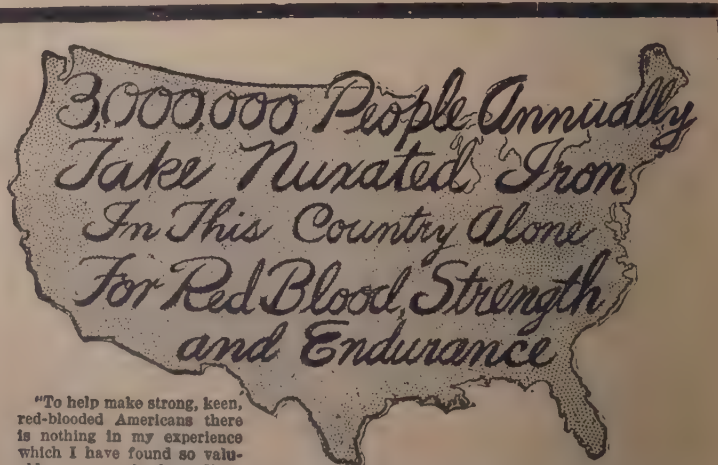 3,000,000 People Annually
Take Nuxated Iron
In This Country Alone
For Red Blood, Strength
and Endurance
"To help make strong, keen,
red-blooded Americans there
is nothing in my experience
which I have found so valu-